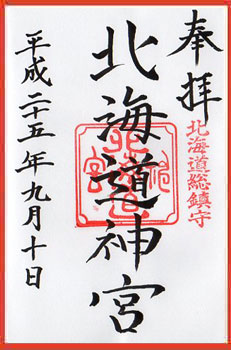 奉拝
北海道総鎮守
北海道神宮
平成二十五年九月十日